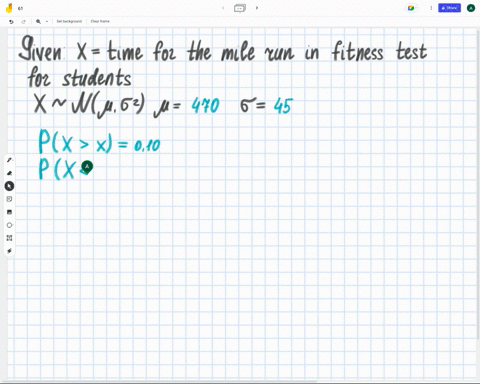 61
Set background Clear frame
Share
Given X = time for the mile run in fitness test
for students
X ~ N(μ, σ²) μ = 470 σ = 45
P(X > x) = 0.10
P(X <
A